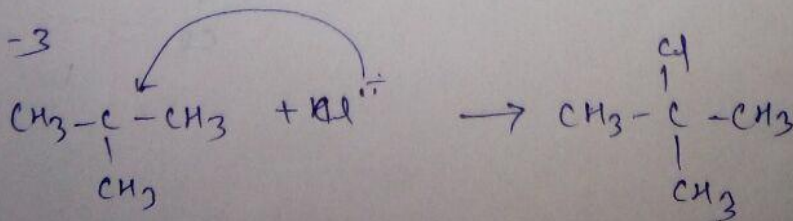 -3
Cl
CH3-C-CH3 + Cl → CH3-C-CH3
CH3 CH3